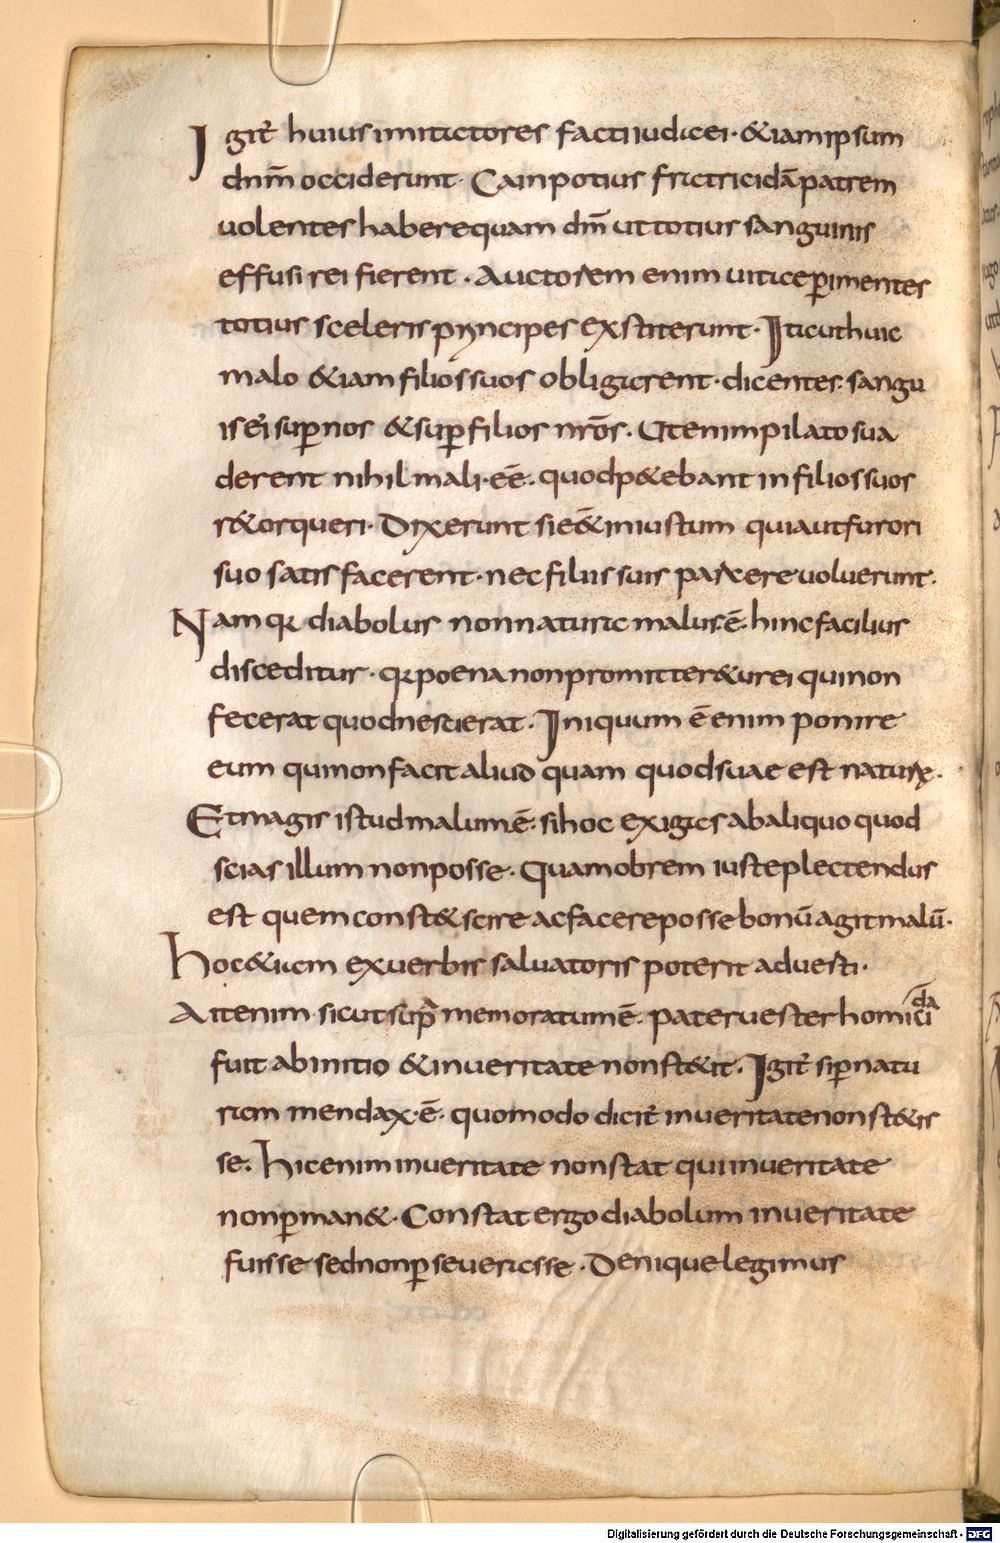 Igit̄ huius imitatores facti iudaei · &iam ipsum
dn̄m occiderunt · Cain potius fratricidā patrem
uolentes habere quam dm̄ ut totius sanguinis
effusi rei fierent . Auctorem enim uitae ꝑimentes
totius sceleris principes exstiterunt · Ita ut huic
malo &iam filios suos obligarent · dicentes · sangu
is ei' suꝑ nos & suꝑ filios nrōs . Ut enim pilato sua
derent nihil mali · eē . quod p&ebant in filios suos
r&orqueri · Dixerunt si eē & iniustum quia ut furori
suo satis facerent · nec filiis suis parcere uoluerunt ·
Nam qa diabolus non natura malus ē · hinc facilius
disceditur · qa poena non promitter&ur ei qui non
fecerat quod nescierat . Iniquum ē enim ponire
eum qui non facit aliud quam quod suae est naturae .
Et magis istud malum ē · si hoc exigas ab aliquo quod
scias illum non posse · Quam obrem iuste plectendus
est quem const& scire ac facere posse bonū agit malū ·
hoc &iam ex uerbis saluatoris poterit aduesti ·
Ait enim · sicut supra memoratum ē · pater uester homicida
fuit ab initio & in ueritate non st&it . Igit̄ si ꝑ natu
ram mendax · ē · quomodo dicit̄ in ueritate non st&is
se . hic enim in ueritate non stat qui in ueritate
non ꝑman& · Constat ergo diabolum in ueritate
fuisse sed non ꝑseuerasse · Denique legimus
Digitalisierung gefördert durch die Deutsche Forschungsgemeinschaft - DFG